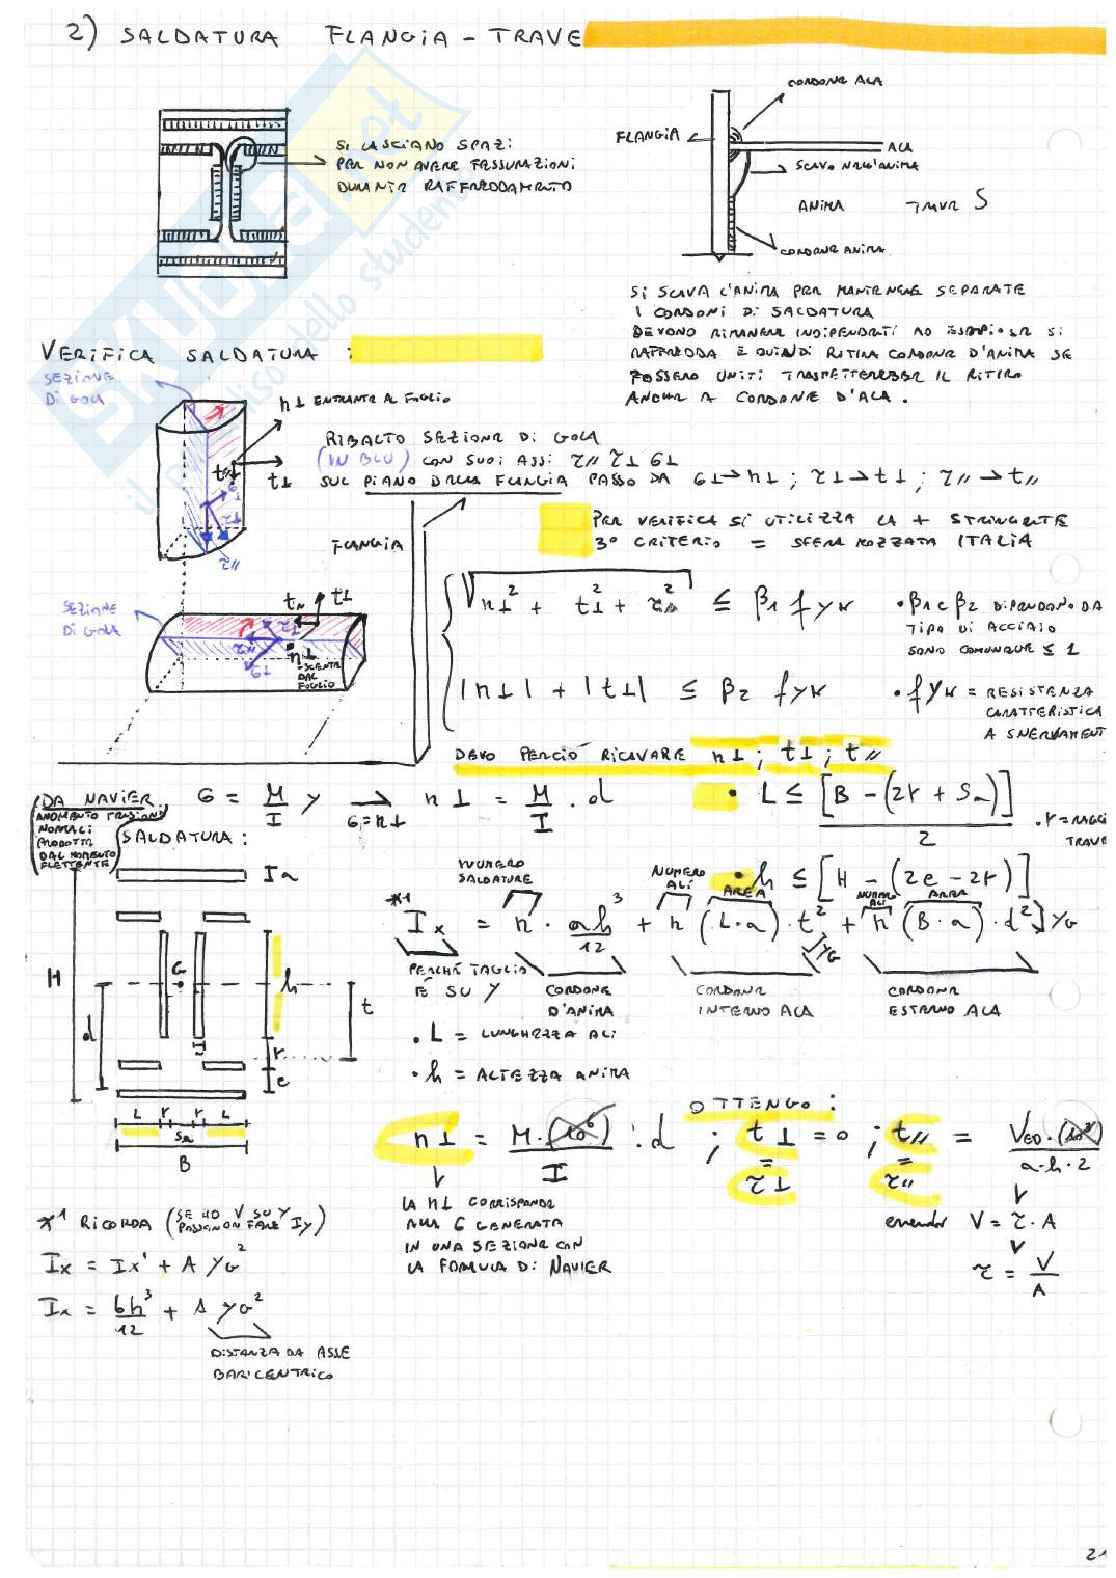 2) SALDATURA FLANGIA - TRAVE
SI LASCIANO SPAZI
PER NON AVERE FESSURAZIONI
DURANTE RAFFREDDAMENTO
CORDONE ALA
FLANGIA
ALA
SCAVO NELL'ANIMA
ANIMA TRAVE S
CORDONE ANIMA
SI SCAVA L'ANIMA PER MANTENERE SEPARATE
I CORDONI DI SALDATURA
DEVONO RIMANERE INDIPENDENTI AD ESEMPIO SE SI
RAFFREDDA E QUINDI RITIRA CORDONE D'ANIMA SE
FOSSERO UNITI TRASMETTEREBBE IL RITIRO
ANCHE A CORDONE D'ALA.
VERIFICA SALDATURA :
SEZIONE
DI GOLA
n⊥ ENTRANTE AL FOGLIO
t//
t⊥
RIBALTO SEZIONE DI GOLA
(IN BLU) CON SUOI ASSI τ// τ⊥ σ⊥
SUL PIANO DELLA FLANGIA PASSO DA σ⊥→n⊥ ; τ⊥→t⊥ ; τ//→t//
τ//
FLANGIA
PER VERIFICA SI UTILIZZA LA + STRINGENTE
3° CRITERIO = SFERA MOZZATA ITALIA
√n⊥² + t⊥² + τ//² ≤ β1 fyk
• β1 e β2 DIPENDONO DA
TIPO DI ACCIAIO
SONO COMUNQUE ≤ 1
SEZIONE
DI GOLA
t// t⊥
τ⊥
τ//
σ⊥
n⊥
USCENTE
DAL
FOGLIO
|n⊥| + |t⊥| ≤ β2 fyk
• fyk = RESISTENZA
CARATTERISTICA
A SNERVAMENT
DEVO PERCIÒ RICAVARE n⊥ ; t⊥ ; t//
(DA NAVIER
ANDAMENTO TENSIONI
NORMALI
PRODOTTE
DAL MOMENTO
FLETTENTE)
σ = M/I y → σ=n⊥ n⊥ = M/I · d
• L ≤ [B - (2r + Sa)]/2
• r = RAGGI
TRAVE
SALDATURA :
• h ≤ [H - (2e - 2r)]
Ia
NUMERO
SALDATURE
NUMERO
ALI
AREA
NUMERO
ALI
AREA
*1 Ix = n · ah³/12 + n (L·a) · t² + n (B·a) · d² yG
yG
PERCHÉ TAGLIO
È SU Y
CORDONE
D'ANIMA
CORDONE
INTERNO ALA
CORDONE
ESTERNO ALA
H
G
h
d
t
r
e
• L = LUNGHEZZA ALI
• h = ALTEZZA ANIMA
L r r L
Sa
B
OTTENGO :
n⊥ = M·(10⁶)/I · d ; t⊥ = 0 ; t// = VED·(10³)/a·h·2
= =
τ⊥ τ//
LA n⊥ CORRISPONDE
ALLA σ GENERATA
IN UNA SEZIONE CON
LA FORMULA DI NAVIER
essendo V = τ · A
τ = V/A
*1 RICORDA (SE HO V SU Y
POSSO NON FARE Iy)
Ix = Ix' + A yG²
Ix = bh³/12 + A yG²
DISTANZA DA ASSE
BARICENTRICO